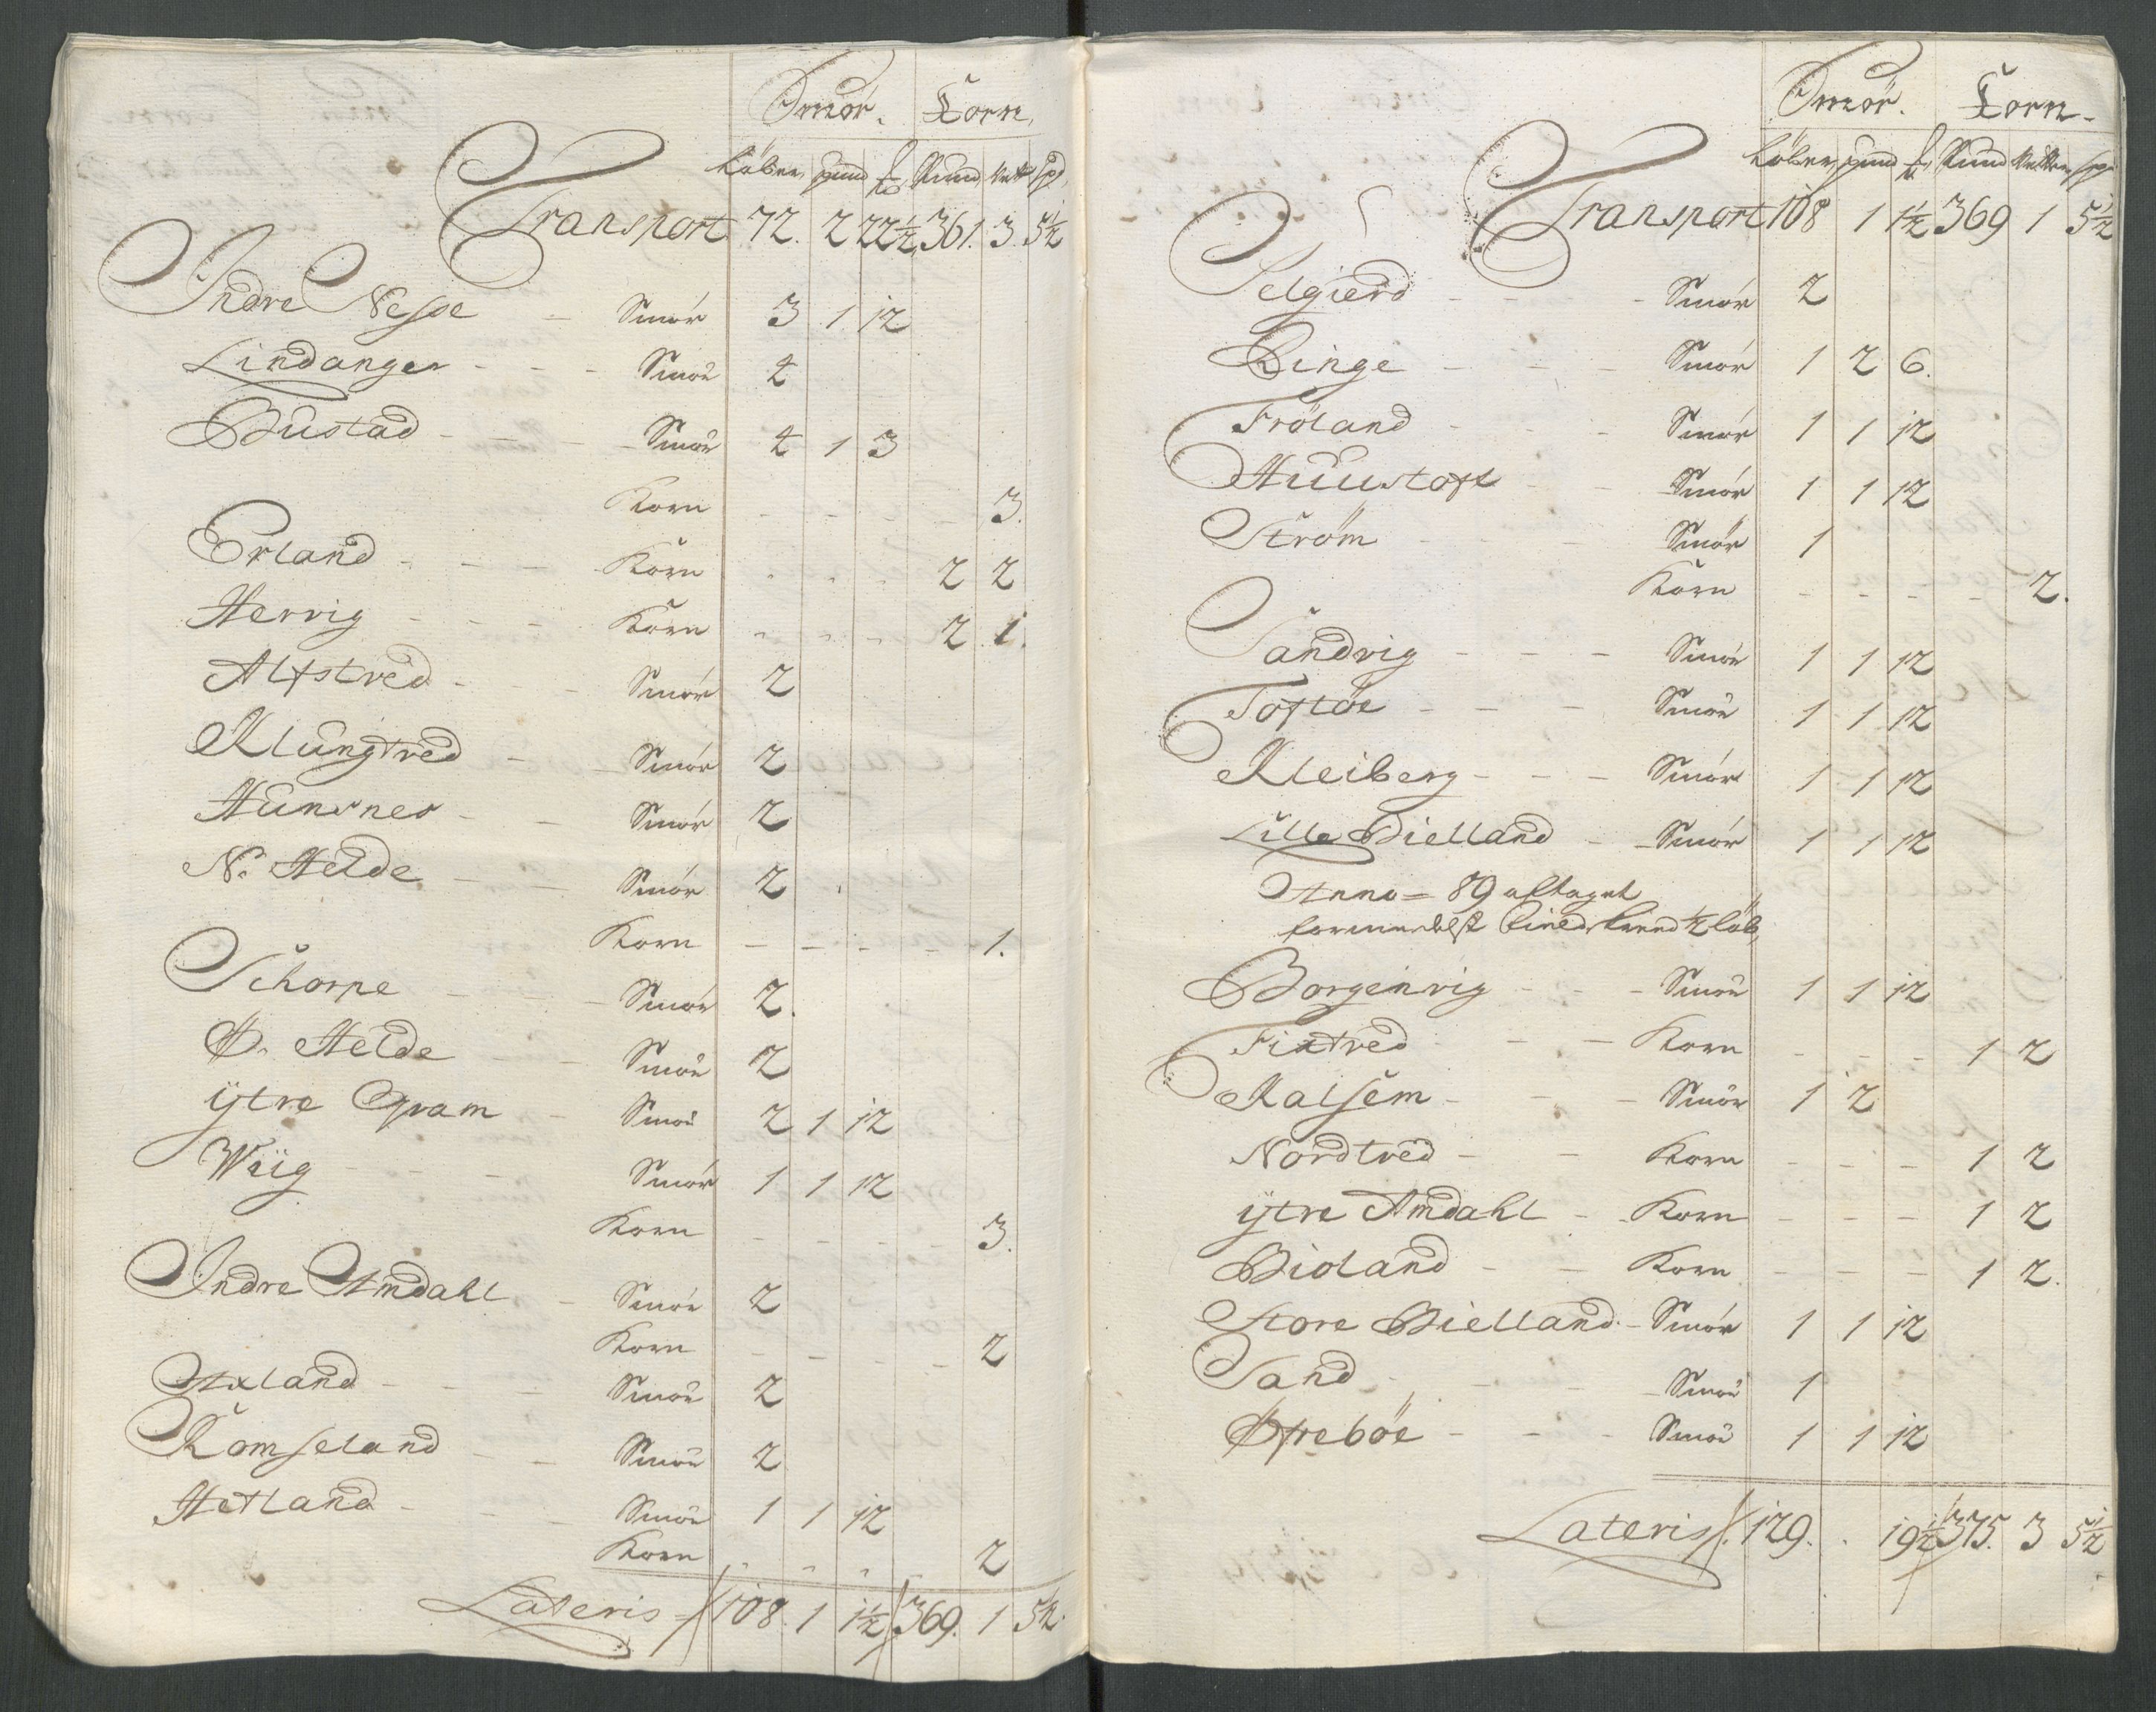 Smör. Korn.
Löber, pund ℔, Pund, Vett Sp.
Transport 72. 2 22½ 361. 3. 5½
Indre Nesse - Smör 3 1 12
Lindanger - - - Smör 4
Bustad - - - Smör 4 1 3
Korn - - - - 3.
Erland - - - Korn - - - 2 2
Hervig - - - Korn - - - 2. 1.
Alfstved - - Smör 2
Klungtved - - Smör 2
Hunsnes - - Smör 2
N. Helde - - Smör 2
Korn - - - - 1.
Schorpe - - - Smör 2.
Ö. Helde - - Smör 2
ÿtre Qvam - Smör 2 1 12
Wiig - - - Smör 1 1 12
Korn - - - - - 3.
Indre Amdahl - Smör 2
Korn - - - - 2
Axland - - - Smör 2
Romseland - - Smör 2
Hetland - - - Smör 1 1 12
Korn - - - - 2
Lateris 108. 1 1½ 369. 1 5½.
Smör. Korn.
Löber, pund ℔, Pund Vetter, Sp
Transport 108 1 1½ 369 1 5½
Selgierd - - - Smör 2
Linge - - - Smör 1 2 6.
Fröland - - - Smör 1 1 12
Huustoft - - Smör 1 1 12
Ström - - - Smör 1
Korn - - - - 2.
Sandvig - - - Smör 1 1 12
Toftöe - - - Smör 1 1 12
Kleiberg - - - Smör 1 1 12
Lille Bielland - - Smör 1 1 12
Anno = 89 aftaget
formedelst ½ löb,
Borgenvig - - - Smör 1 1 12
Fixtved - - Korn - - - 1 2
Kalsem - - - Smör 1 2
Nordtved - - Korn - - - 1 2
ÿtre Amdahl - - Korn - - - 1 2
Bioland - - Korn - - - 1 2.
Store Bielland. - Smör 1 1 12
Sand - - - Smör 1
Öfreböe - - - Smör 1 1 12
Lateris 129. . 19½ 375. 3 5½